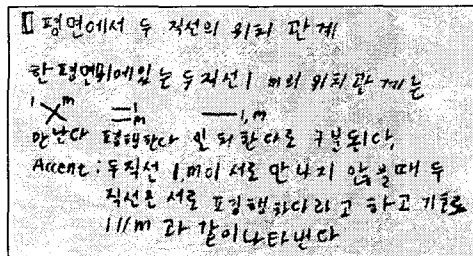 ▯ 평면에서 두 직선의 위치 관계
한 평면위에있는 두직선 l m의 위치관계는
l m l m l, m
만난다 평행한다 일치한다로 구분된다.
Accent : 두직선 l m이 서로 만나지 않을때 두
직선은 서로 평행하다라고 하고 기호로
l//m 과 같이나타낸다